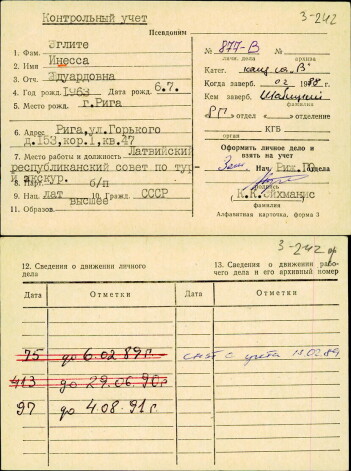 Контрольный учет
3-242
Псевдоним
1. Фам. Эглите
2. Имя Инесса
3. Отч. Эдуардовна
4. Год рожд. 1963 Дата рожд. 6.7.
5. Место рожд. г.Рига
6. Адрес Рига, ул.Горького
д.153, кор.1, кв.47
7. Место работы и должность Латвийский
республиканский совет по тур-
и экскур.
8. Парт. б/п
9. Нац. лат 10. Гражд. СССР
11. Образов. высшее
№ 877-В
лични. дела
Катег.
Когда заверб. 02 1988 г.
Кем заверб.
фамилия
отдел отделение
КГБ
орган
Оформить личное дело и
взять на учет
Зам. Нач. отдела
подпись
К.К.Эйхманис
фамилия
Алфавитная карточка, форма 3
3-242
12. Сведения о движении личного
дела
13. Сведения о движении рабо-
чего дела и его архивный номер
Дата Отметки Дата Отметки
75 до 6.02.89г. снят с учета 13.02.89
413 до 29.06.90г
97 до 4.08.91г.